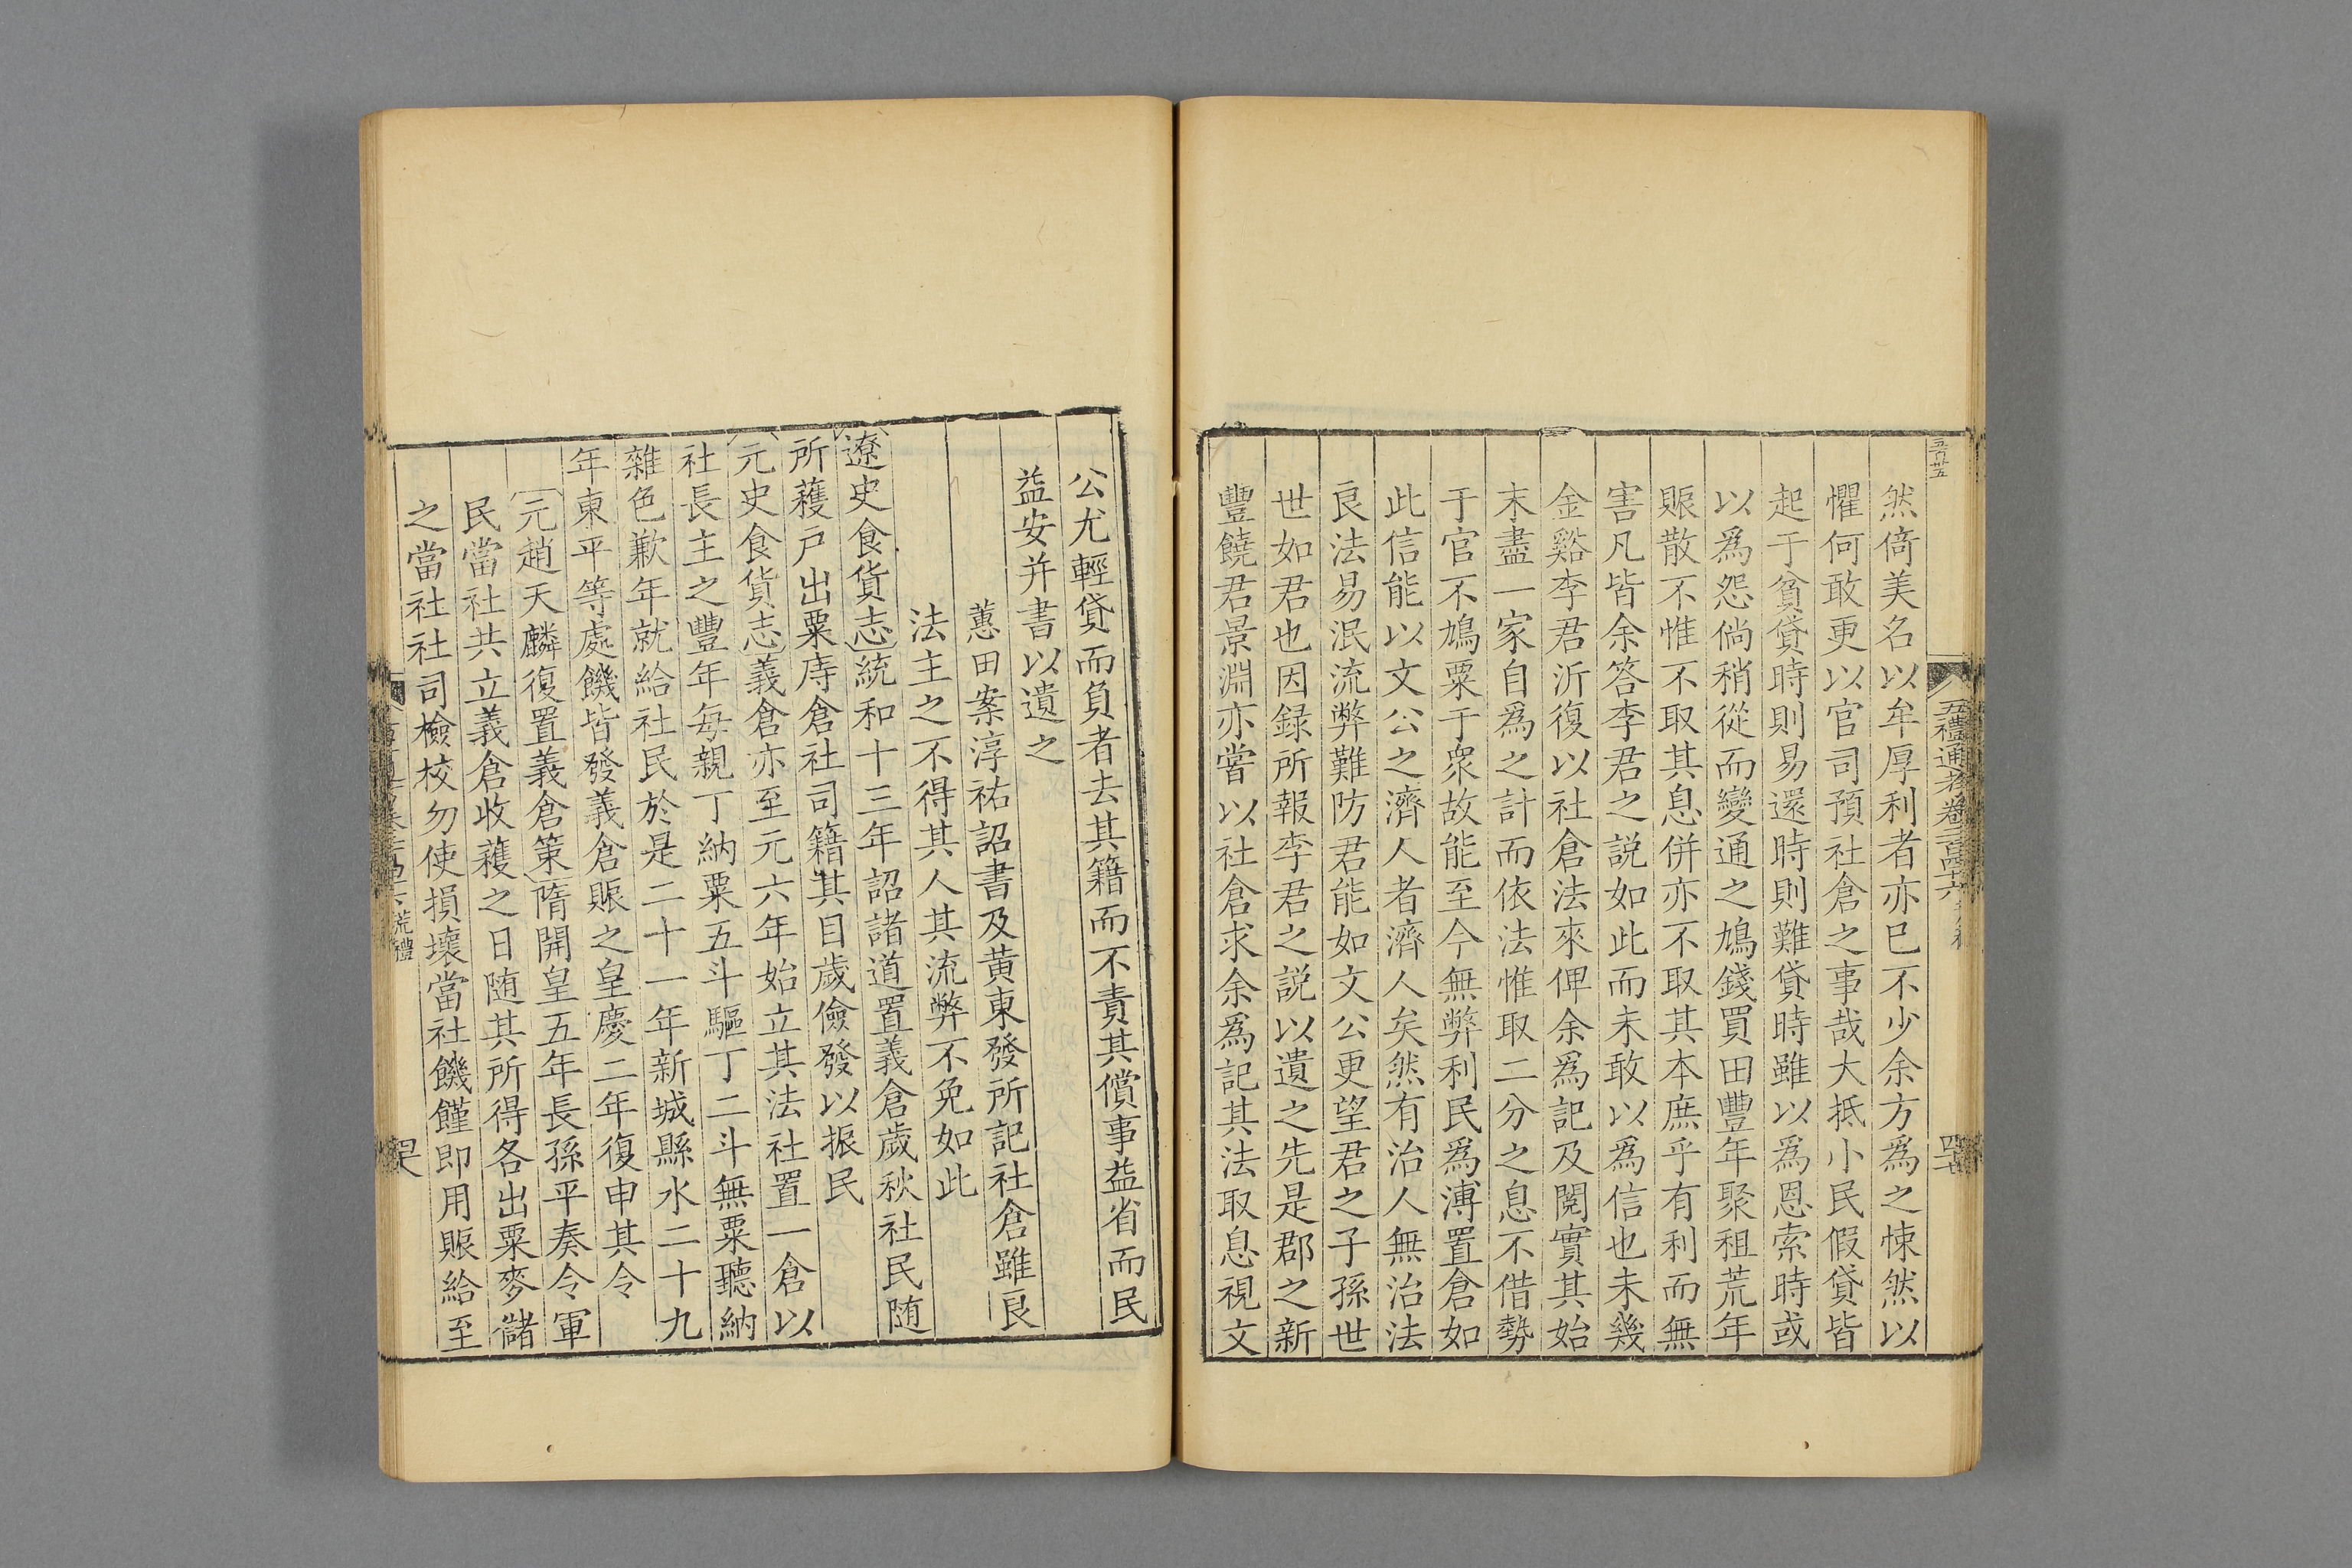 五禮通考卷二百四十六
然倚美名以牟厚利者亦已不少余方爲之悚然以
懼何敢更以官司預社倉之事哉大抵小民假貸皆
起于貧貸時則易還時則難貸時雖以爲恩索時或
以爲怨倘稍從而變通之鳩錢買田豐年聚租荒年
賑散不惟不取其息併亦不取其本庶乎有利而無
害凡皆余答李君之説如此而未敢以爲信也未幾
金谿李君沂復以社倉法來俾余爲記及閱實其始
末盡一家自爲之計而依法惟取二分之息不借勢
于官不鳩粟于衆故能至今無弊利民爲溥置倉如
此信能以文公之濟人者濟人矣然有治人無治法
良法易泯流弊難防君能如文公更望君之子孫世
世如君也因録所報李君之説以遺之先是郡之新
豐饒君景淵亦嘗以社倉求余爲記其法取息視文
公尤輕貸而負者去其籍而不責其償事益省而民
益安并書以遺之
蕙田案淳祐詔書及黄東發所記社倉雖良
法主之不得其人其流弊不免如此
遼史食貨志統和十三年詔諸道置義倉歲秋社民随
所穫戸出粟庤倉社司籍其目歲儉發以振民
元史食貨志義倉亦至元六年始立其法社置一倉以
社長主之豐年每親丁納粟五斗驅丁二斗無粟聽納
雜色歉年就給社民於是二十一年新城縣水二十九
年東平等處饑皆發義倉賑之皇慶二年復申其令
元趙天麟復置義倉策隋開皇五年長孫平奏令軍
民當社共立義倉收穫之日随其所得各出粟麥儲
之當社社司檢校勿使損壞當社饑饉即用賑給至
荒禮